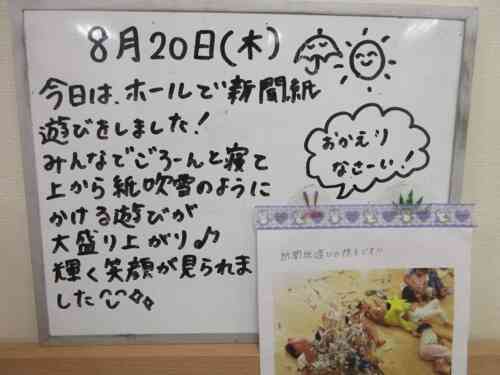 8月20日(木)
今日は、ホールで新聞紙
遊びをしました!
みんなでごろーんと寝て
上から紙吹雪のように
かける遊びが
大盛り上がり♪
輝く笑顔が見られま
した
おかえり
なさーい!
新聞紙遊びの様子です!!